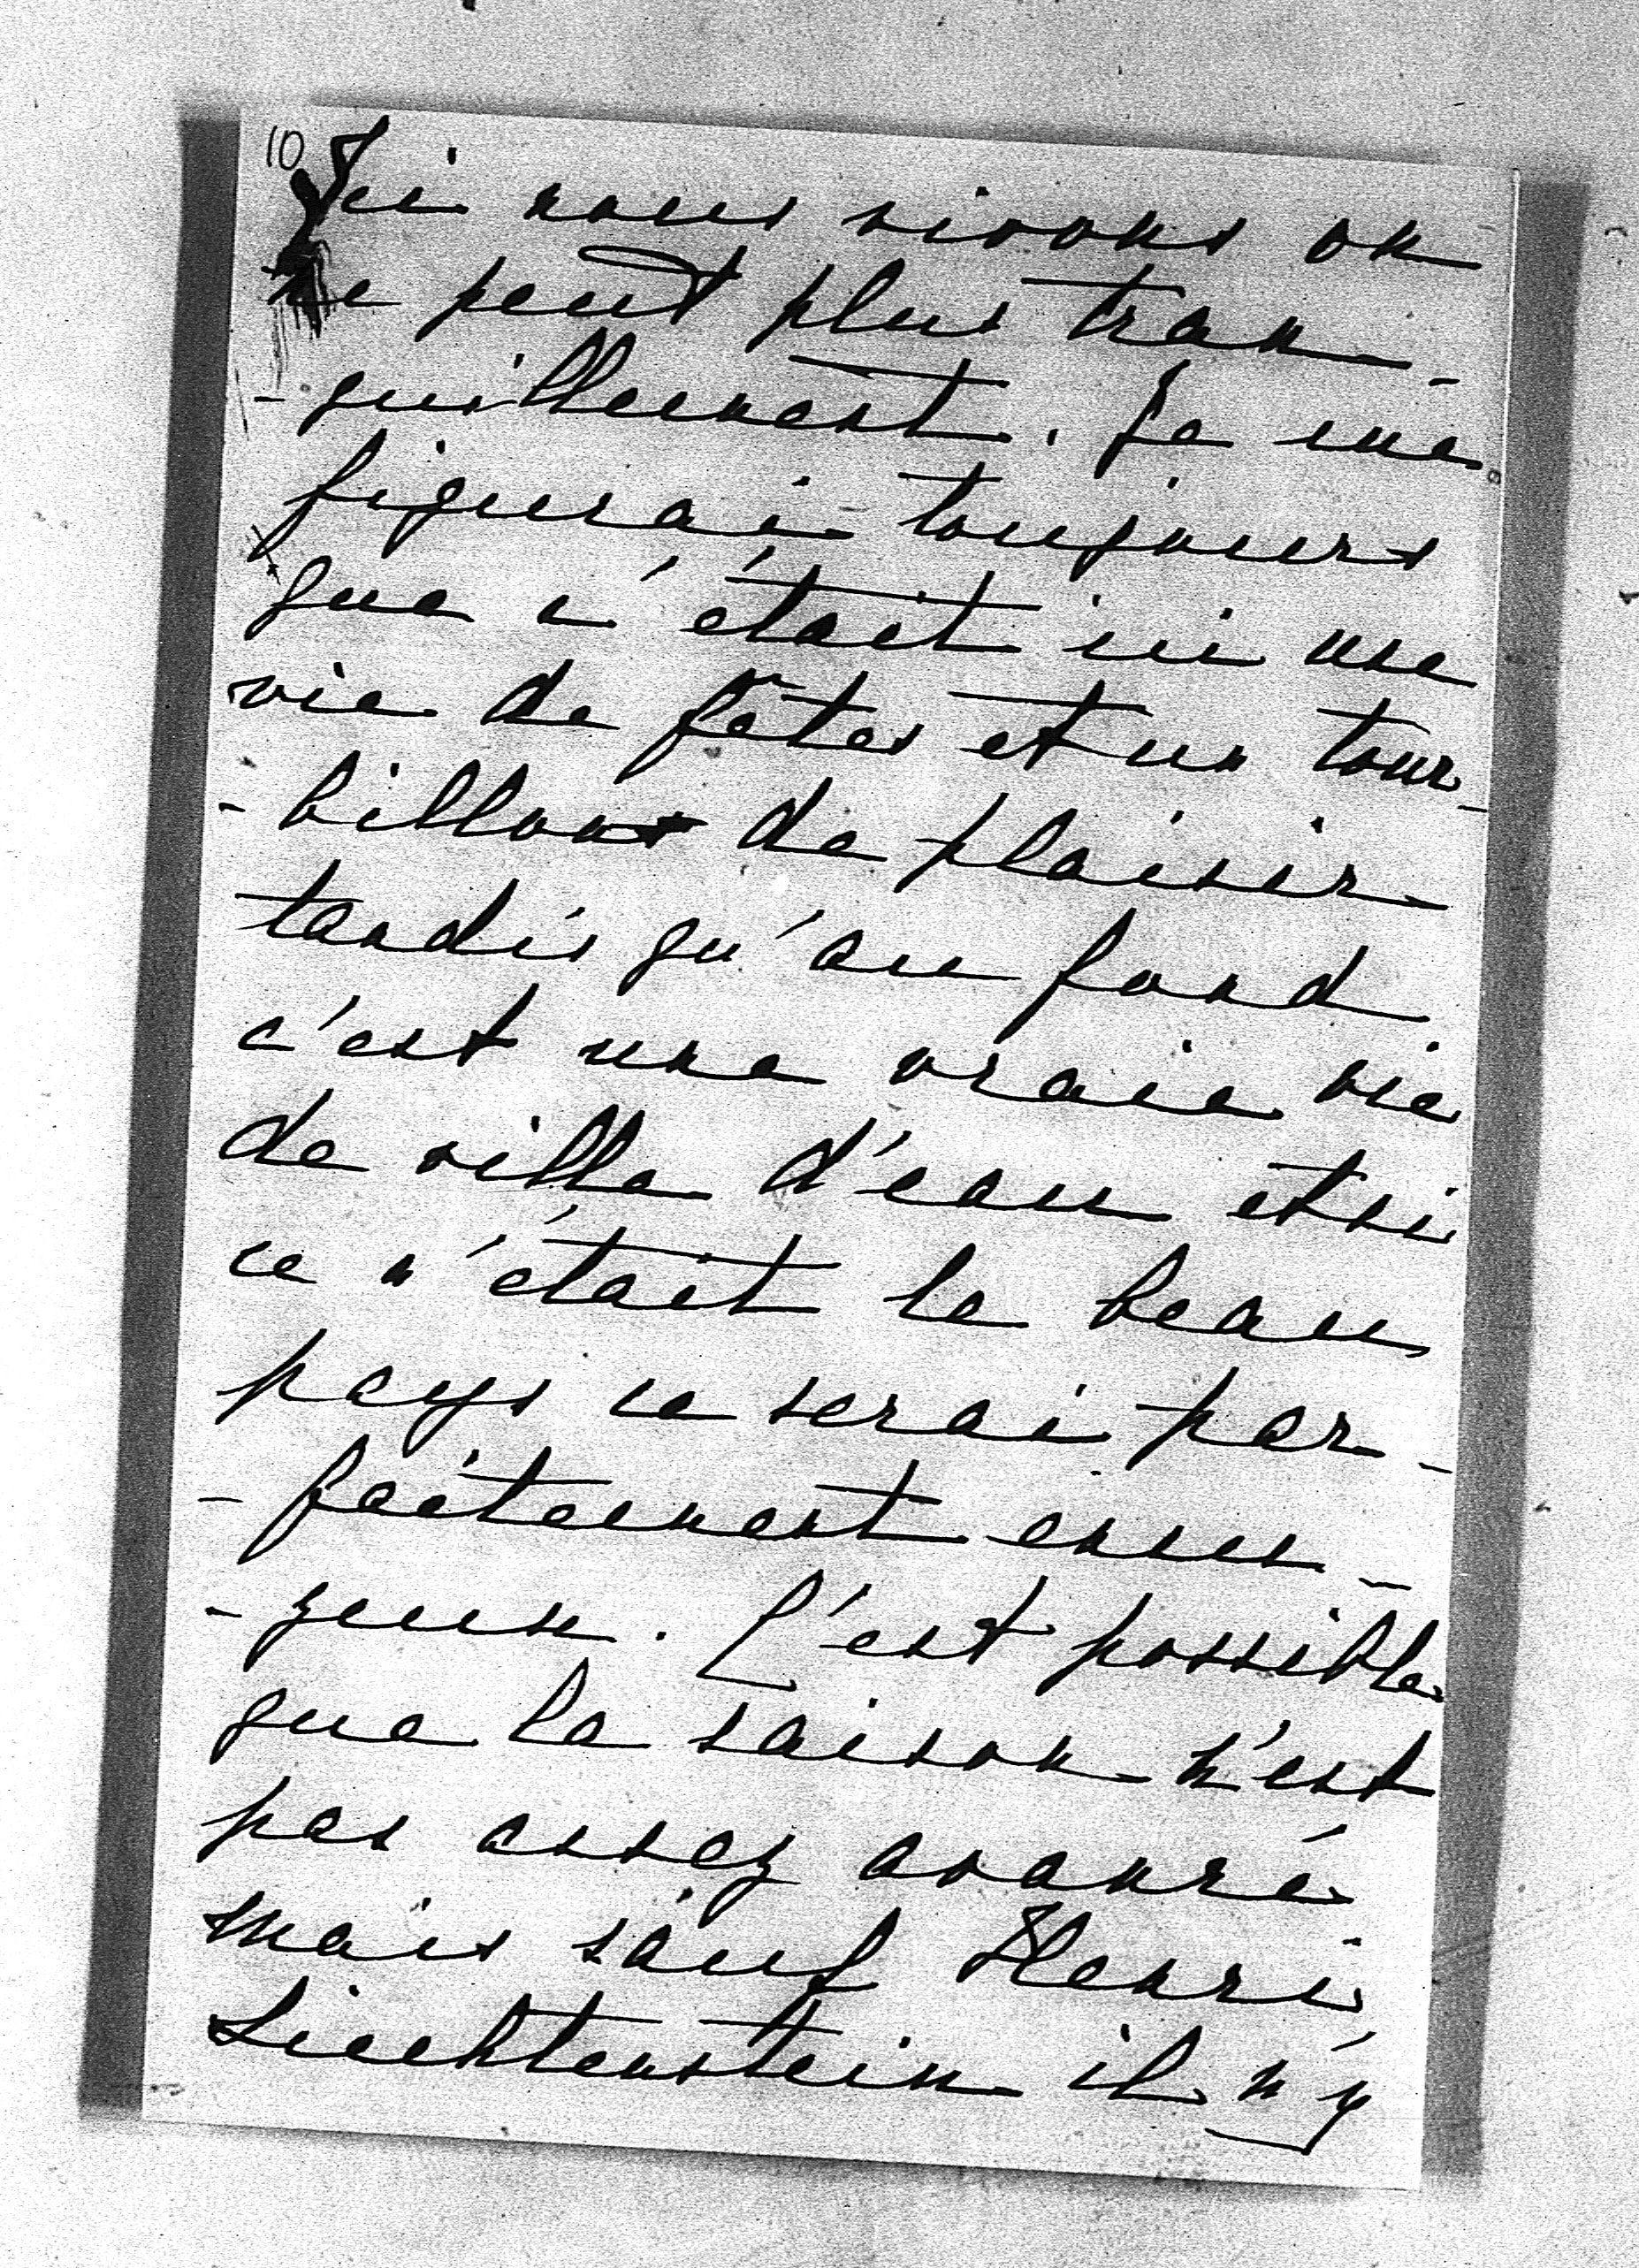 10
Ici nous vivons on
ne peut plus tran-
-quillement. Je me
figurai toujours
que c'était ici une
vie de fêtes et un tour-
-billon de plaisir
tandis qu'au fond
c'est une vraie vie
de ville d'eau et si
ce n'était le beau
pays ce serai par-
-faitement ennu-
-yeux. C'est possible
que la saison n'est
pas assez avancé
mais sauf Henri
Liechtenstein il n'y